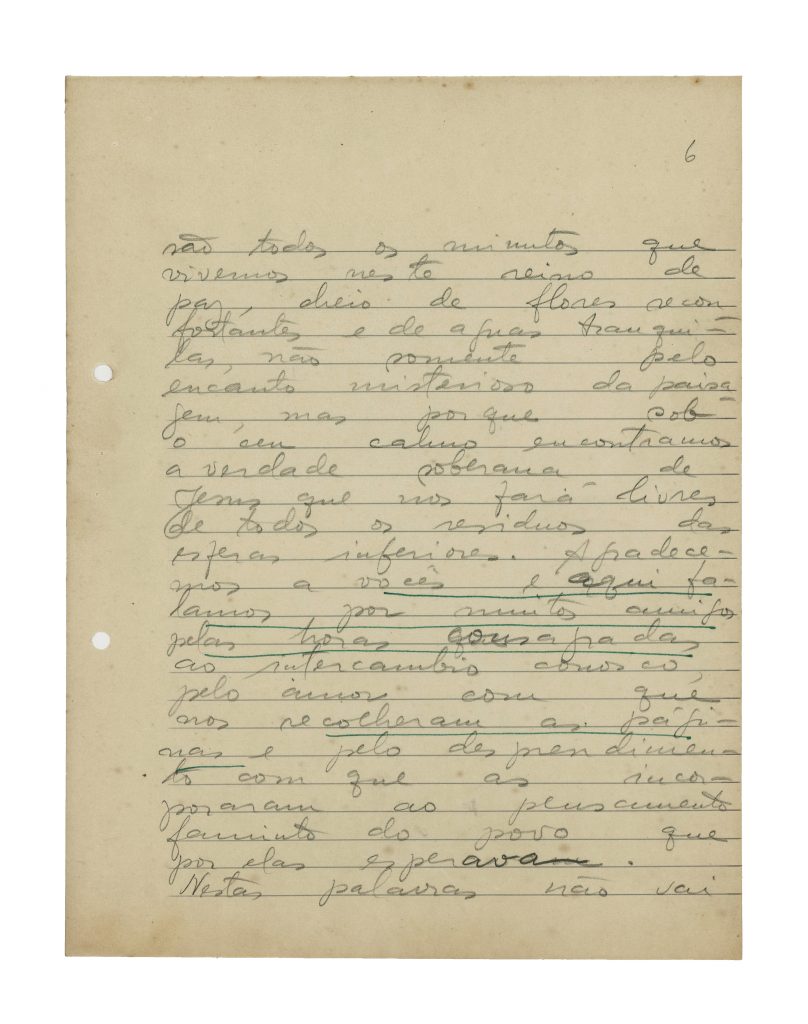 6
são todos os minutos que
vivemos neste reino de
paz, cheio de flores recon-
fortantes e de aguas tranqui-
las, não somente pelo
encanto misterioso da paisa-
gem, mas porque sob
o céu calmo encontramos
a verdade soberana de
Jesus que nos fará livres
de todos os residuos das
esferas inferiores. Agradece-
mos a vocês e aqui fa-
lamos por muitos amigos
pelas horas consagradas
ao intercambio conosco,
pelo amor com que
nos recolheram as pági-
nas e pelo desprendimen-
to com que as incor-
poraram ao pensamento
faminto do povo que
por elas esperava.
Nestas palavras não vai